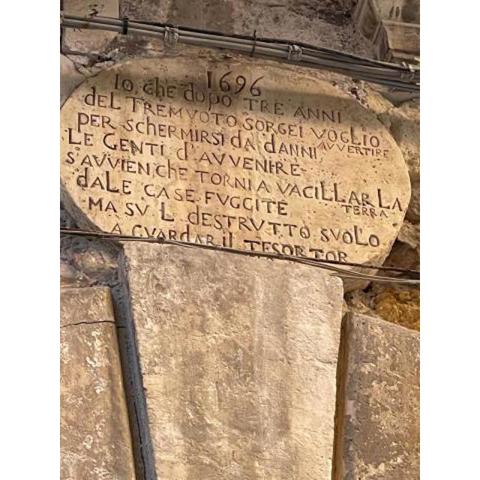 1696
IO, CHE DOPO TRE ANNI
DEL TREMVOTO SORGEI VOGLIO
PER SCHERMIRSI DA DANNI AVVERTIRE
LE GENTI D'AVVENIRE-
S'AVVIEN CHE TORNI A VACILLAR LA TERRA
DALE CASE FUGGITE
MA SU L DESTRUTTO SUOLO
A GUARDAR IL TESOR TOR